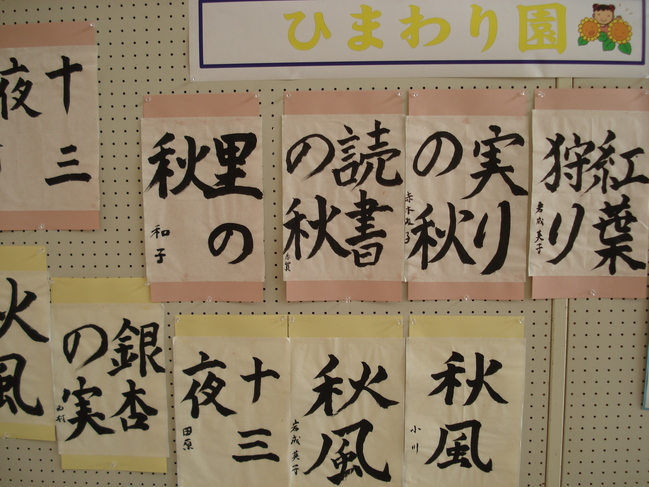 ひまわり園
紅葉
狩り
岩成英子
実り
の秋
読書
の秋
里の
秋
和子
十三
夜
秋風
小川
秋風
岩成英子
十三
夜
田原
銀杏
の実
秋風